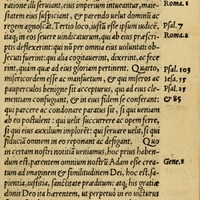 ratione illi seruiant, eius imperium intueantur, maie- Roma. 1
statem eius suspiciant, & parendo uelut domini ac
regem agnoscat. Tertio loco, iusti esse ipsum iudice, Psal. 7
itaq; in eos seuere uindicaturum, qui ab eius præscri Roma. 2
ptis deflexerint: qui nõ per omnia eius uoluntati ob-
secuti fuerint: qui alia cogitauerint, dixerint, fece-
rint, quàm quæ ad eius gloriam pertinent. Quarto, Psal. 103
misericordem esse ac mansuetum, & qui miseros ac Iesa. 55
pauperculos benigne sit accepturus, qui ad eius cle- Psal. 25
mentiam confugiant, & in eius fidem se conserant: & 85
qui parcere ac condonare paratus sit, si qua ueniam
ab eo postulent: qui uelit succurrere ac opem ferre,
si qui eius auxilium implorët: qui seruare uelit, si qui
fiduciã omnem in eo reponant ac defigant. Quo
in certam nostri notitiã ueniamus, hoc prius haben-
dum est, parentem omnium nostrũ Adam esse crea- Gene. 1
tum ad imaginem & similitudinem Dei, hoc est, sa-
pientia, iustitia, sanctitate præditum: atq; his gratiæ
donis Deo ita hærentem, ut perpetuo in eo uicturus